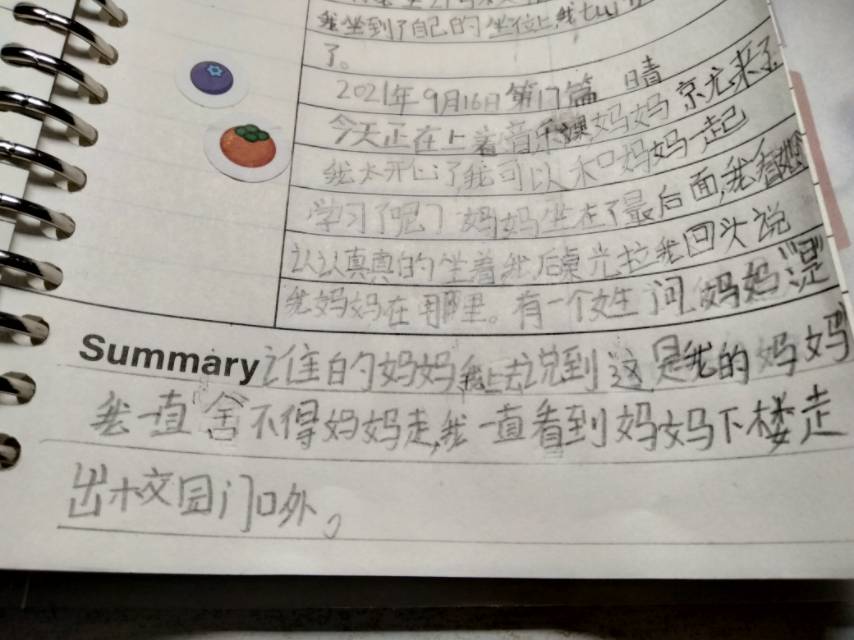 我坐到了自己的坐位上,我tu
了。
2021年9月16日第17篇 晴
今天正在上着音乐课妈妈京尤来了
我太开心了我可以和妈妈一起
学习了呢?妈妈坐在了最后面,我看妈妈
认认真真的坐着我后桌尤拉我回头说
我妈妈在那里。有一个女生问妈妈“是
Summary谁的妈妈我上去说到这是我的妈妈
我一直舍不得妈妈走,我一直看到妈妈下楼走
出校园门口外。